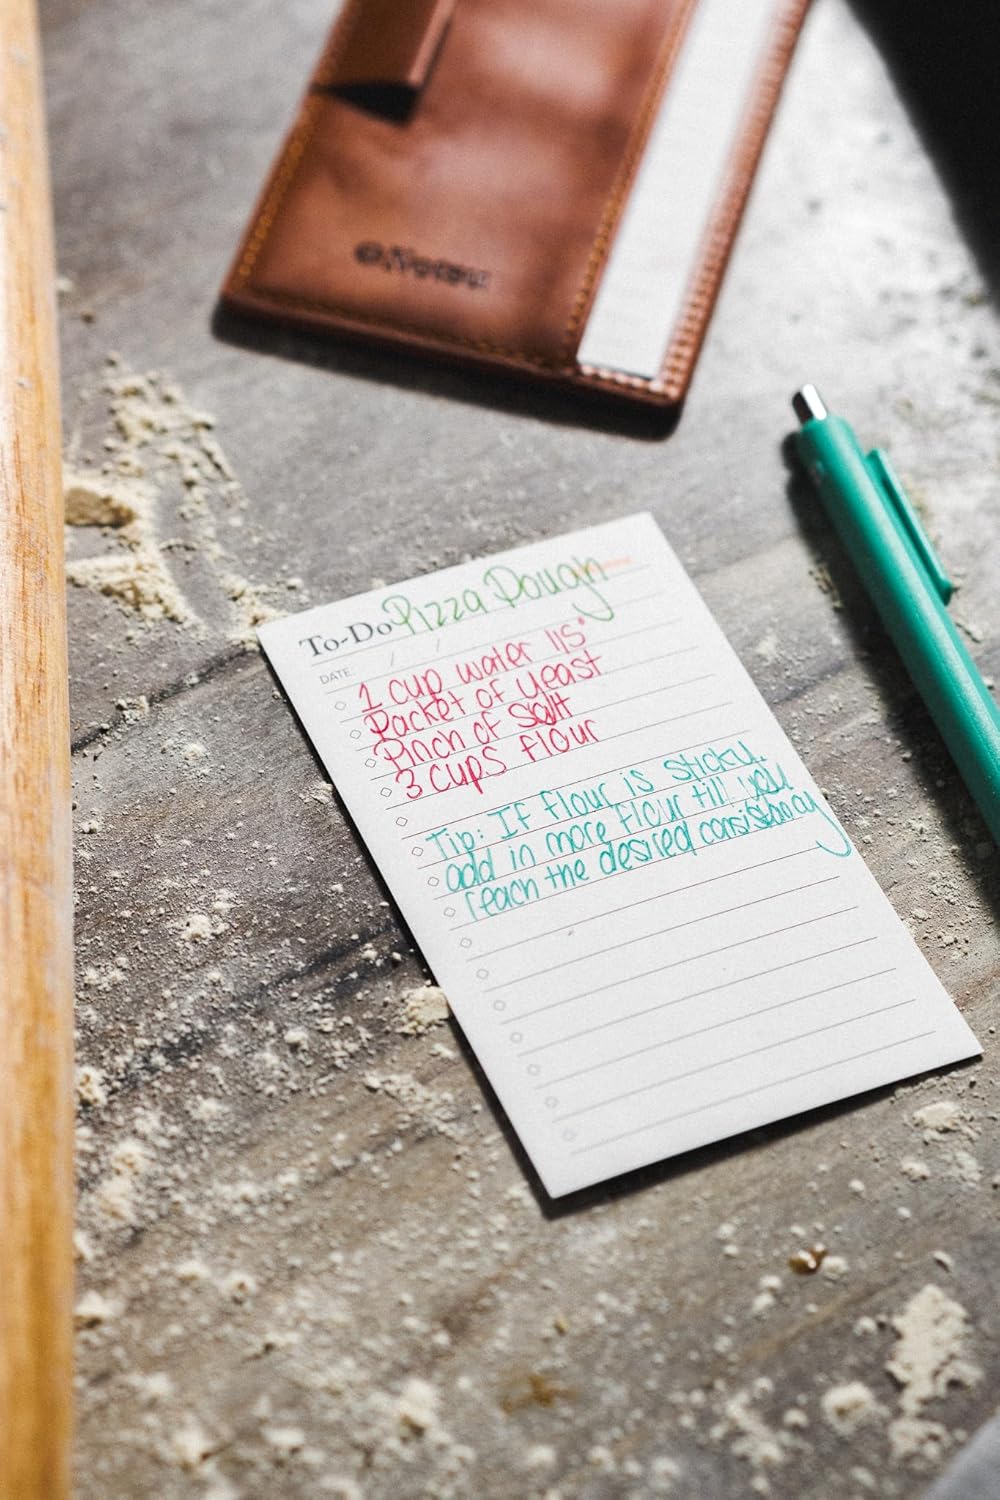 Notsu
To-Do Pizza Dough
DATE: / /
1 cup water 115°
Packet of yeast
Pinch of salt
3 cups flour
Tip: If flour is sticky
add in more flour till you
reach the desired consistancy